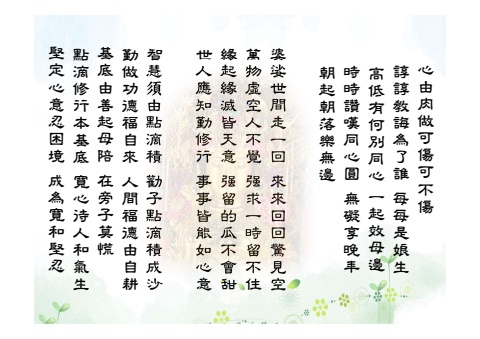 心由肉做可傷可不傷
諄諄教誨為了誰 每每是娘生
高低有何別同心 一起效母邊
時時讚嘆同心圓 無礙享晚年
朝起朝落樂無邊
婆娑世間走一回 來來回回驚見空
萬物虛空人不覺 強求一時留不住
緣起緣滅皆天意 強留的瓜不會甜
世人應知勤修行 事事皆能如心意
智慧須由點滴積 勸子點滴積成沙
勤做功德福自來 人間福德由自耕
基底由善起母陪 在旁子莫慌
點滴修行本基底 寬心詩人和氣生
堅定心意忍困境 成為寬和堅忍